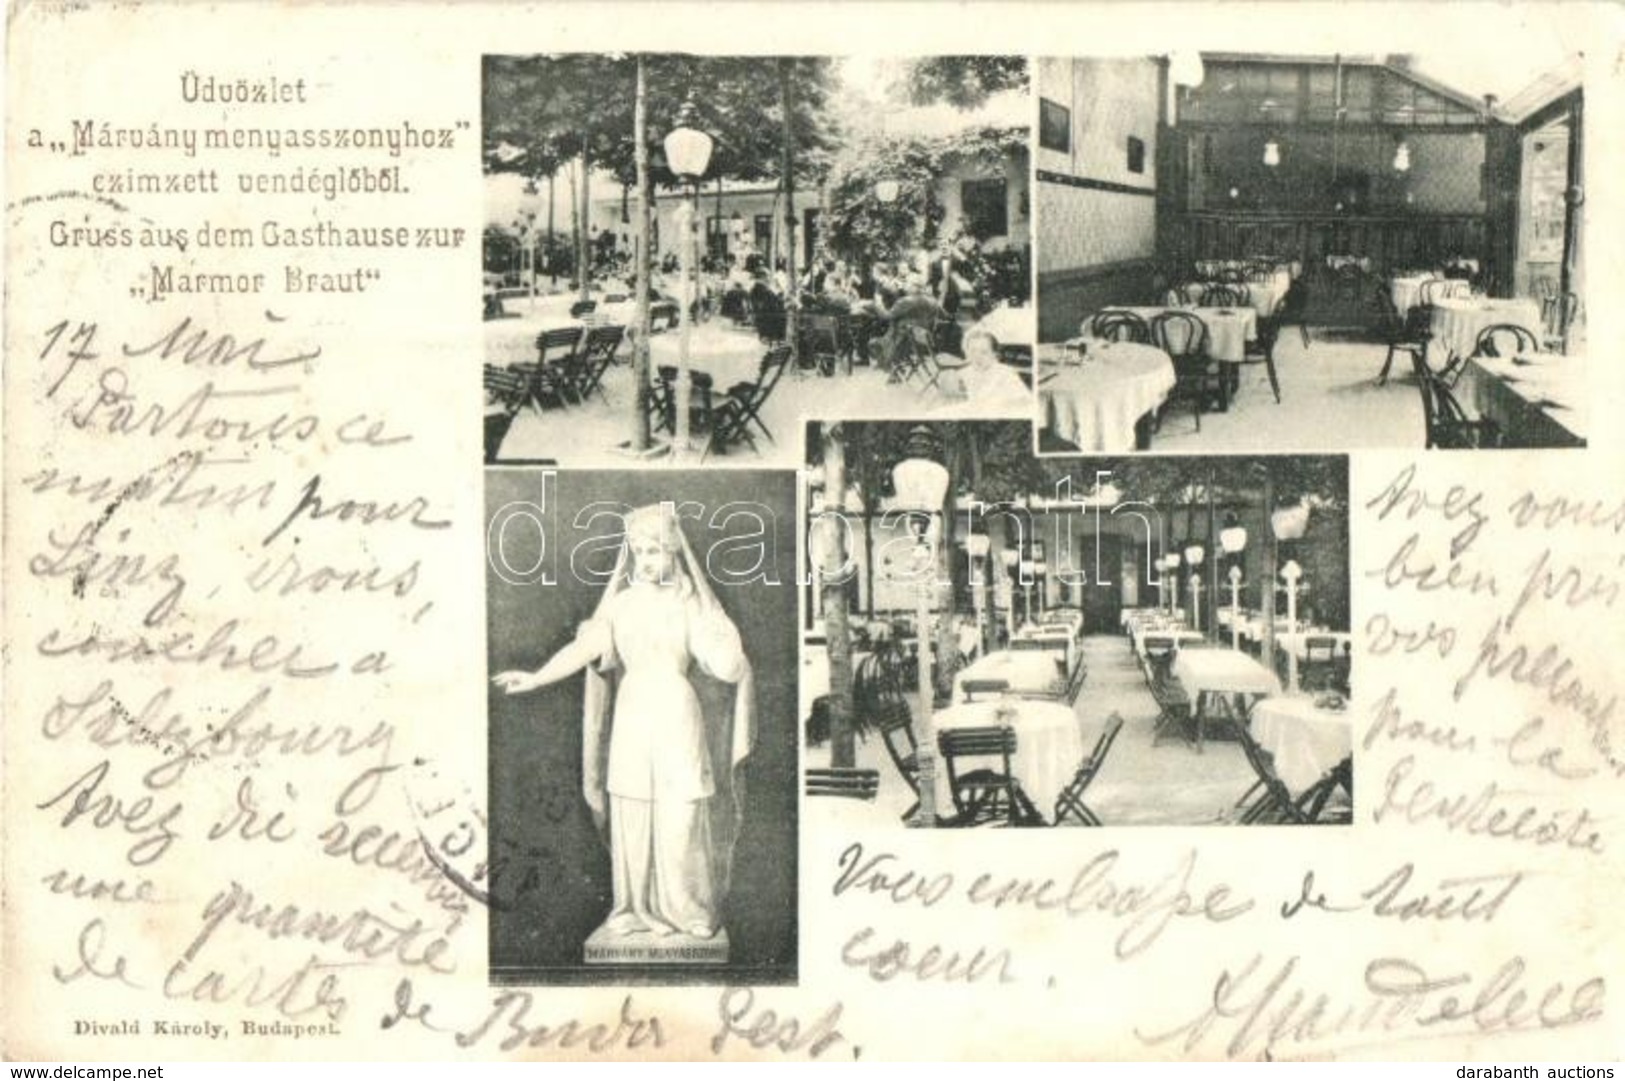 Üdvözlet
a „Márvány menyasszonyhoz”
czimzett vendéglőből.
Gruss aus dem Gasthause zur
„Marmor Braut“
17 Mai
Partons ce
matin pour
Linz, irons,
coucher a
Salzbourg
Avez dû recevoir
une quantité
de cartes de Buda Pest.
Avez vous
bien pris
vos
pour la
Pentecôte
Vous embrasse de tout
coeur.
MÁRVÁNY MENYASSZONY
darabanth
Divald Károly, Budapest.
delcampe.net
darabanth auctions